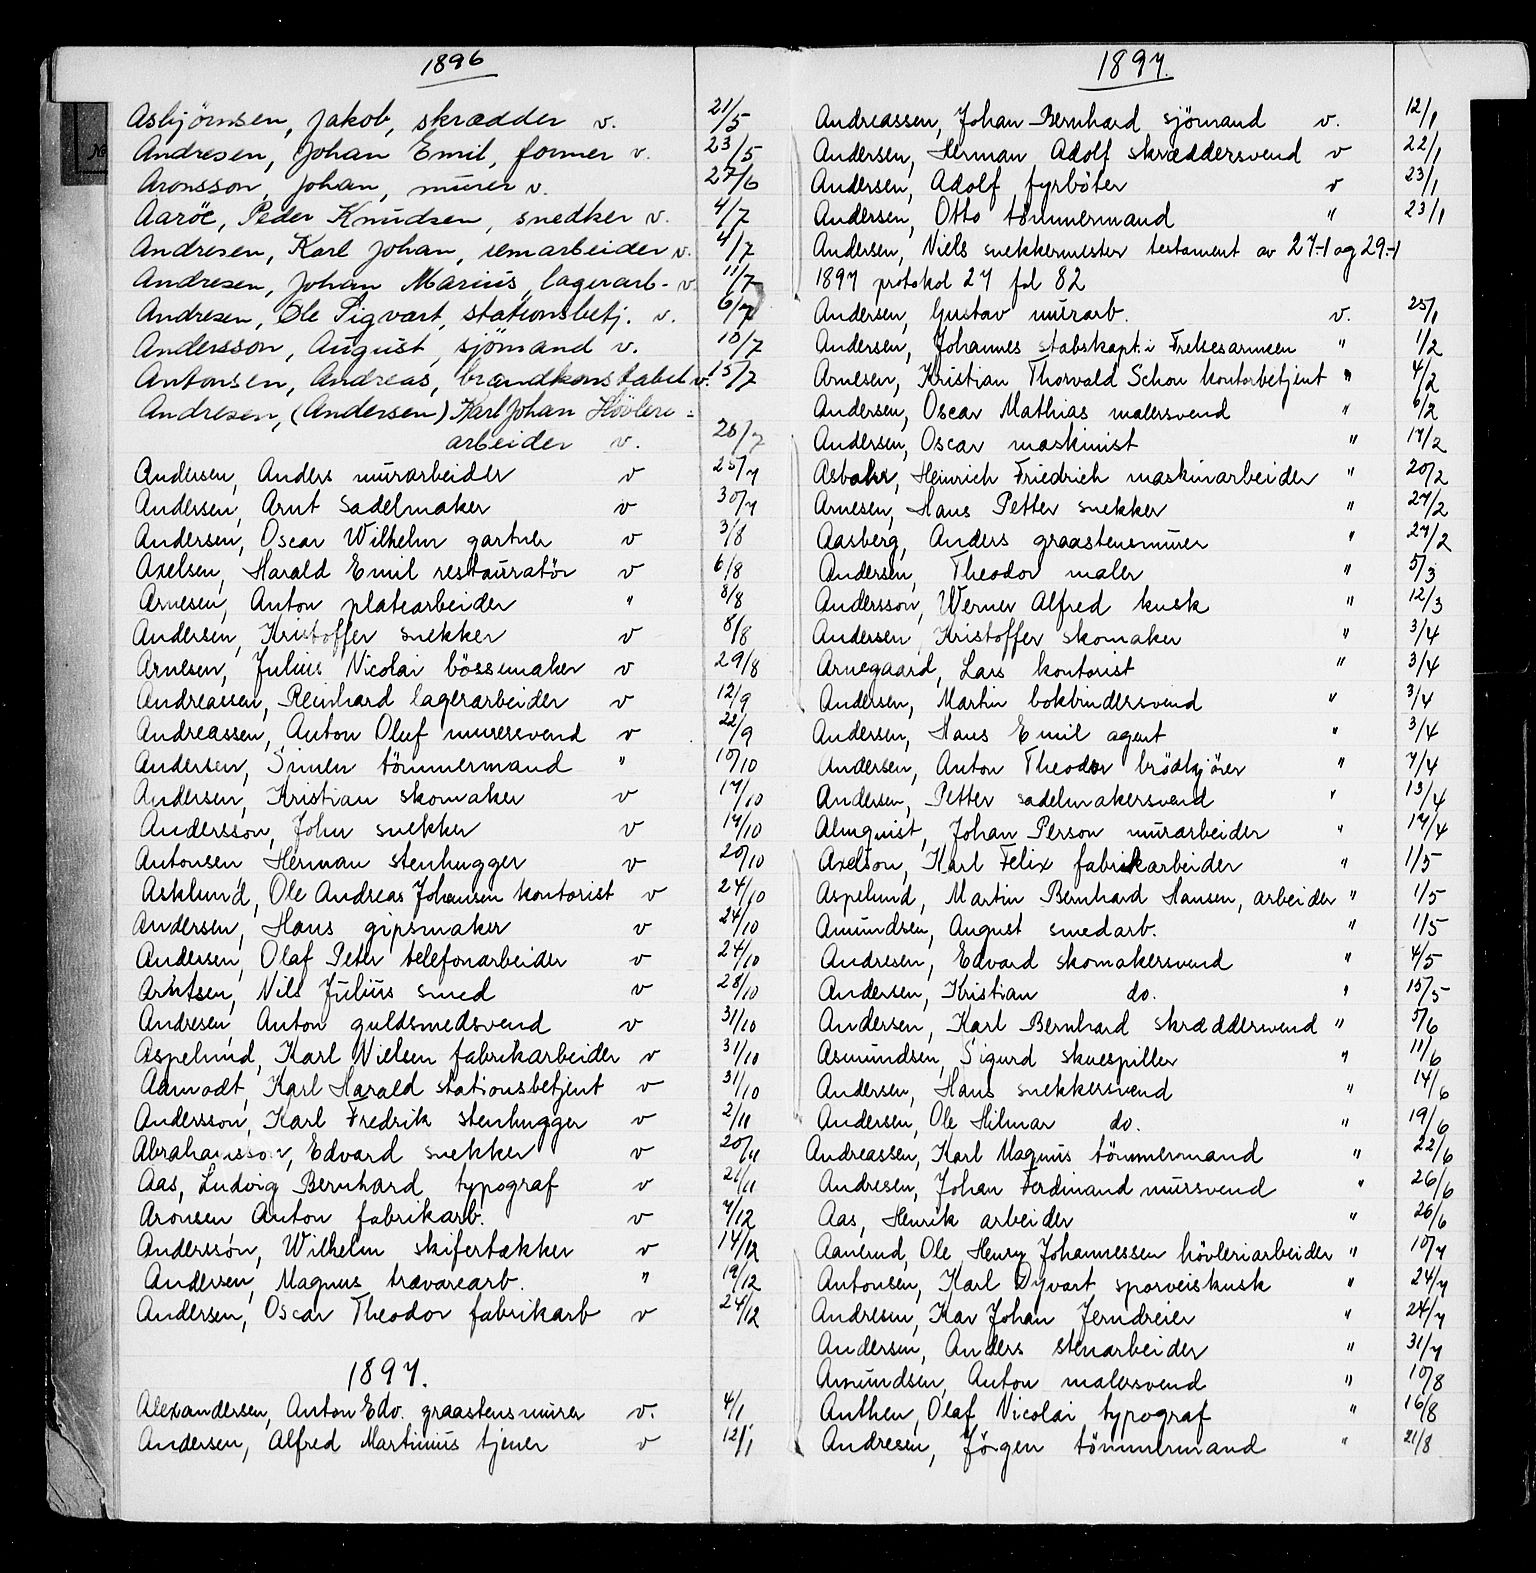 1896
Asbjörnsen, Jakob, skrædder v. 21/5
Andresen, Johan Emil, former v. 23/5
Aronsson, Johan, murer v. 27/6
Aaröe, Peder Knudsen, snedker v. 4/7
Andresen, Karl Johan, remarbeider v. 4/7
Andresen, Johan Marius, lagerarb. v. 11/7
Andresen, Ole Sigvart, stationsbetj. v. 6/7
Andersson, August, sjömand v. 10/7
Antonsen, Andreas, brandkonstabel v. 15/7
Andresen, (Andersen) Karl Johan Hövleri=
arbeider v. 20/7
Andersen, Anders murarbeider v 25/7
Andersen, Arnt sadelmaker v 30/7
Andersen, Oscar Wilhelm gartner v 3/8
Axelsen, Harald Emil restauratör v 6/8
Arnesen, Anton platearbeider " 8/8
Andersen, Kristoffer snekker v 8/8
Arnesen, Julius Nicolai bössemaker v 29/8
Andreassen, Reinhard lagerarbeider v 12/9
Andreassen, Anton Oluf murersvend v 22/9
Andersen, Simen tömmermand " 10/10
Andersen, Kristian skomaker v 17/10
Andersson, John snekker v 17/10
Antonsen Herman stenhugger v 20/10
Asklund, Ole Andreas Johansen kontorist v 24/10
Andersen, Hans gipsmaker v 24/10
Andersen, Olaf Peter telefonarbeider v 24/10
Arntsen, Nils Julius smed v 28/10
Andresen, Anton guldsmedsvend v 31/10
Aspelund, Karl Nielsen fabrikarbeider v 31/10
Aamodt, Karl Harald stationsbetjent v 31/10
Andersson, Karl Fredrik stenhugger v 2/11
Abrahamsson, Edvard snekker v 20/11
Aas, Ludvig Bernhard typograf v 21/11
Aronsen Anton fabrikarb. v 7/12
Anderssön, Wilhelm skifertækker v 14/12
Andersen, Magnus trævarearb. " 19/12
Andersen, Oscar Theodor fabrikarb v 24/12
1897.
Alexandersen, Anton Edv. graastensmurer v. 4/1
Andersen, Alfred Martinius tjener v 12/1
1897.
Andreassen, Johan Bernhard sjömand v. 12/1
Andersen, Herman Adolf skræddersvend v 22/1
Andersen, Adolf fyrböter v 23/1
Andersen, Otto tömmermand " 23/1
Andersen, Niels snekkermester testament av 27-1 og 29-1
1897 protokol 27 fol 82
Andersen, Gustav murarb. v. 25/1
Andersen, Johannes stabskapt. i Frelsesarmeen " 1/2
Arnesen, Kristian Thorvald Schou kontorbetjent " 4/2
Andersen, Oscar Mathias malersvend " 6/2
Andersen, Oscar maskinist " 17/2
Asbahr, Heinrich Friedrich maskinarbeider " 20/2
Arnesen, Hans Petter snekker " 27/2
Aasberg, Anders graastensmurer " 27/2
Andersen, Theodor maler " 5/3
Andersson, Werner Alfred kusk " 12/3
Andersen, Kristoffer skomaker " 3/4
Arnegaard, Lars kontorist " 3/4
Andersen, Martin bokbindersvend " 3/4
Andersen, Hans Emil agent " 3/4
Andersen, Anton Theodor brödkjörer " 7/4
Andersen, Petter sadelmakersvend " 13/4
Almquist, Johan Person murarbeider " 17/4
Axelson, Karl Felix fabrikarbeider " 1/5
Aspelund, Martin Bernhard Hansen, arbeider " 1/5
Amundsen, August smedarb. " 1/5
Andresen, Edvard skomakersvend " 4/5
Andersen, Kristian do. " 15/5
Andersen, Karl Bernhard skræddersvend " 5/6
Asmundsen, Sigurd skuespiller " 11/6
Andersen, Hans snekkersvend " 14/6
Andersen, Ole Hilmar do. " 19/6
Andreassen, Karl Magnus tömmermand " 22/6
Andresen, Johan Ferdinand mursvend " 26/6
Aas, Henrik arbeider " 26/6
Aanerud, Ole Henry Johannessen hövleriarbeider " 10/7
Antonsen, Karl Dyvart sporveiskusk " 24/7
Andresen, Kar Johan Jerndreier " 24/7
Andersen, Anders stenarbeider " 31/7
Amundsen, Anton malersvend " 10/8
Anthen, Olaf Nicolai typograf " 16/8
Andresen, Jörgen tömmermand " 21/8